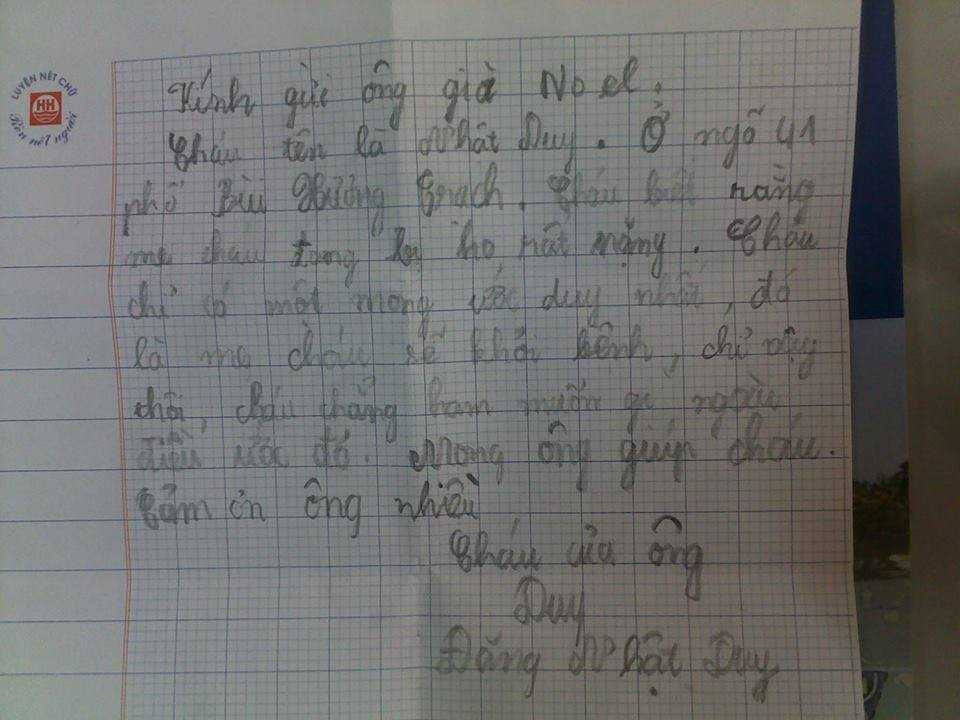 LUYỆN NÉT CHỮ
HH
Rèn nết người
Kính gửi ông già No el.
Cháu tên là Nhật Duy. Ở ngõ 41
phố Bùi Xương Trạch. Cháu biết rằng
mẹ cháu đang bị ho rất nặng. Cháu
chỉ có một mong ước duy nhất, đó
là mẹ cháu sẽ khỏi bệnh, chỉ vậy
thôi, cháu chẳng ham muốn gì ngoài
điều ước đó. Mong ông giúp cháu.
Cảm ơn ông nhiều
Cháu của ông
Duy
Đặng Nhật Duy